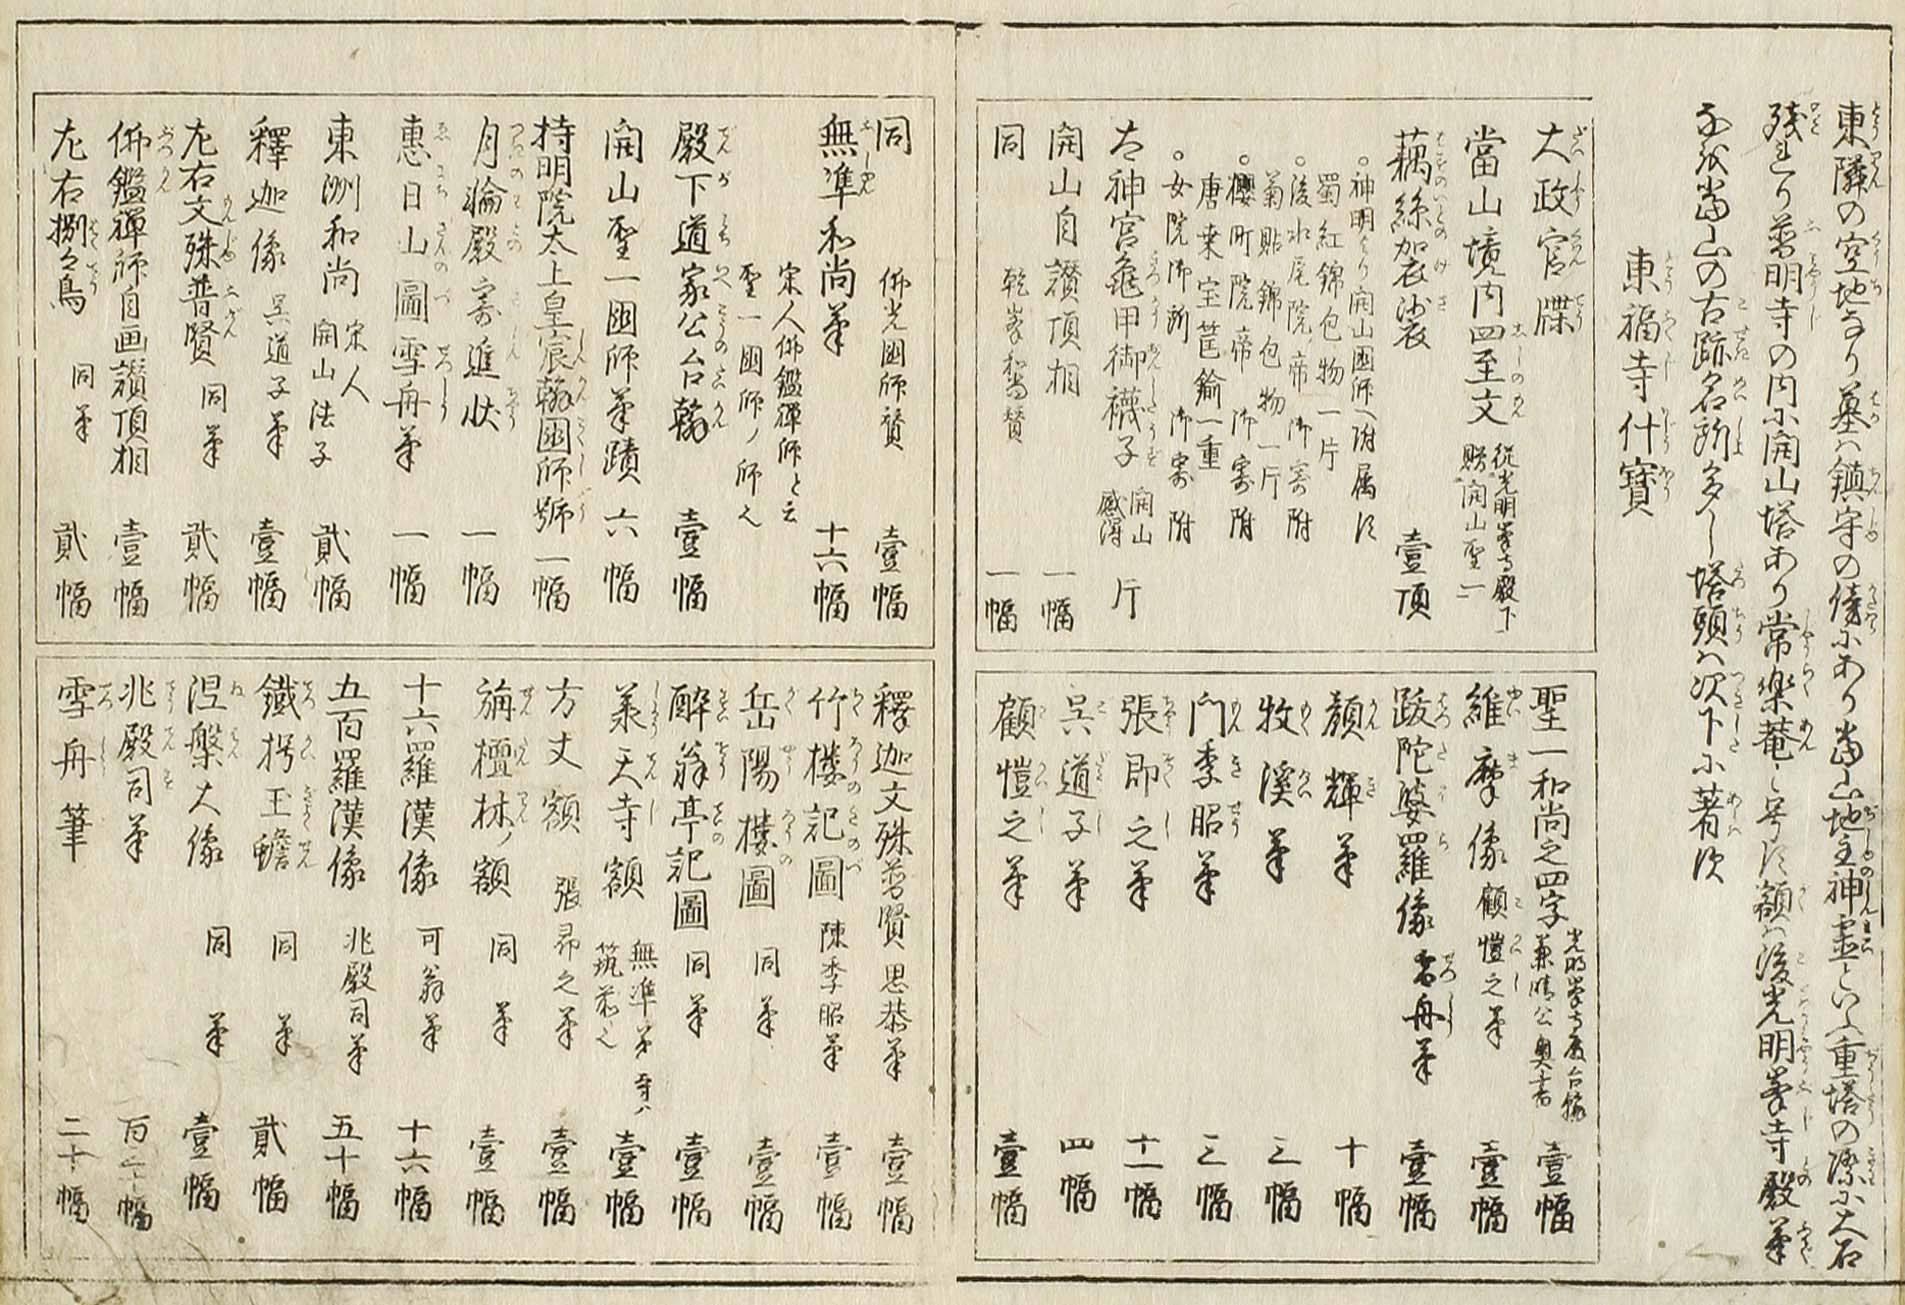 東隣の空地なり墓は鎮守の傍にあり当山地主神霊といふ重塔の際に大石
残れり普明寺の内に開山塔あり常楽菴と号す額は後光明峯寺殿筆
なり当山の古跡名所多し塔頭は次下に著す
東福寺什寳
大政官牒
當山境内四至文 従光明峯寺殿下賜開山聖一
藕絲袈裟 壹頂
○神明より開山国師へ附属す
蜀紅錦包物一片
○後水尾院帝御寄附
菊貼錦包物一片
○櫻町院帝御寄附
唐桒宝筐鑰一重
○女院御所御寄附
太神宮龜甲御襪子 開山感得 片
開山自讃頂相 一幅
同 乾峯和尚賛 一幅
聖一和尚之四字 兼晴公奥書 壹幅
維摩像 顧愷之筆 壹幅
跋陀婆羅像 雪舟筆 壹幅
顔輝筆 十幅
牧溪筆 三幅
門季昭筆 三幅
張即之筆 十一幅
呉道子筆 四幅
顧愷之筆 壹幅
同 佛光國師賛 壹幅
無準和尚筆 十六幅
宋人佛鑑禪師と云
聖一國師ノ師也
殿下道家公台翰 壹幅
開山聖一國師筆蹟 六幅
持明院太上皇宸翰國師號 一幅
月輪殿寄進状 一幅
惠日山圖雪舟筆 一幅
東洲和尚 宋人開山法子 貳幅
釋迦像 呉道子筆 壹幅
左右文殊普賢 同筆 貳幅
佛鑑禪師自画讃頂相 壹幅
左右捌々鳥 同筆 貳幅
釋迦文殊普賢 思恭筆 壹幅
竹楼記圖 陳季昭筆 壹幅
岳陽楼圖 同筆 壹幅
酔翁亭記圖 同筆 壹幅
承天寺額 無準筆 寺ハ筑前也 壹幅
方丈額 張即之筆 壹幅
旃檀林ノ額 同筆 壹幅
十六羅漢像 可翁筆 十六幅
五百羅漢像 兆殿司筆 五十幅
鐵拐玉蟾 同筆 貳幅
涅槃大像 同筆 壹幅
兆殿司筆 百二十幅
雪舟筆 二十幅